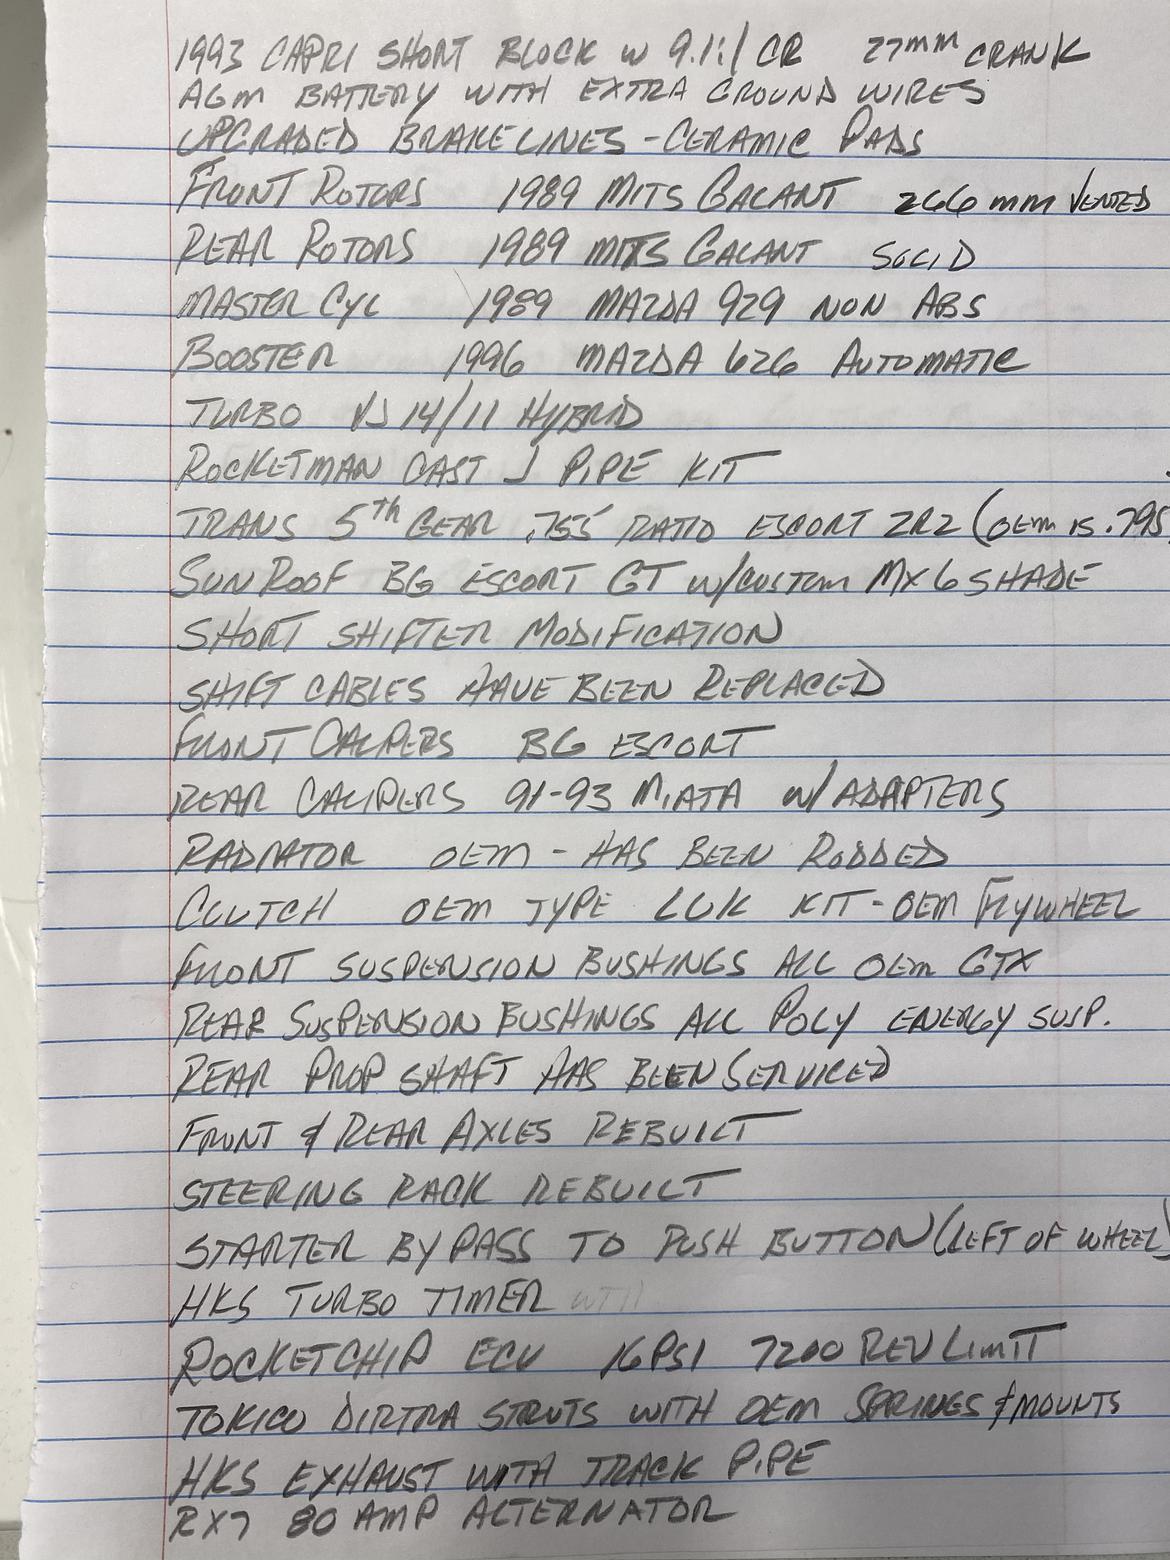 1993 CAPRI SHORT BLOCK W 9.1:1 CR 27MM CRANK
AGM BATTERY WITH EXTRA GROUND WIRES
UPGRADED BRAKE LINES - CERAMIC PADS
FRONT ROTORS 1989 MITS GALANT 266 mm VENTED
REAR ROTORS 1989 MITS GALANT SOLID
MASTER CYL 1989 MAZDA 929 NON ABS
BOOSTER 1996 MAZDA 626 AUTOMATIC
TURBO VJ 14/11 HYBRID
ROCKETMAN CAST J PIPE KIT
TRANS 5Th GEAR .755 RATIO ESCORT ZR2 (OEM IS .795
SUNROOF BG ESCORT GT W/CUSTOM MX6 SHADE
SHORT SHIFTER MODIFICATION
SHIFT CABLES HAVE BEEN REPLACED
FRONT CALIPERS BG ESCORT
REAR CALIPERS 91-93 MIATA W/ADAPTERS
RADIATOR OEM - HAS BEEN RODDED
CLUTCH OEM TYPE LUK KIT - OEM FLYWHEEL
FRONT SUSPENSION BUSHINGS ALL OEM GTX
REAR SUSPENSION BUSHINGS ALL POLY ENERGY SUSP.
REAR PROP SHAFT HAS BEEN SERVICED
FRONT & REAR AXLES REBUILT
STEERING RACK REBUILT
STARTER BYPASS TO PUSH BUTTON (LEFT OF WHEEL)
HKS TURBO TIMER
ROCKETCHIP ECU 16 PSI 7200 REV LIMIT
TOKICO DIRTRA STRUTS WITH OEM SPRINGS & MOUNTS
HKS EXHAUST WITH TRACK PIPE
RX7 80 AMP ALTERNATOR